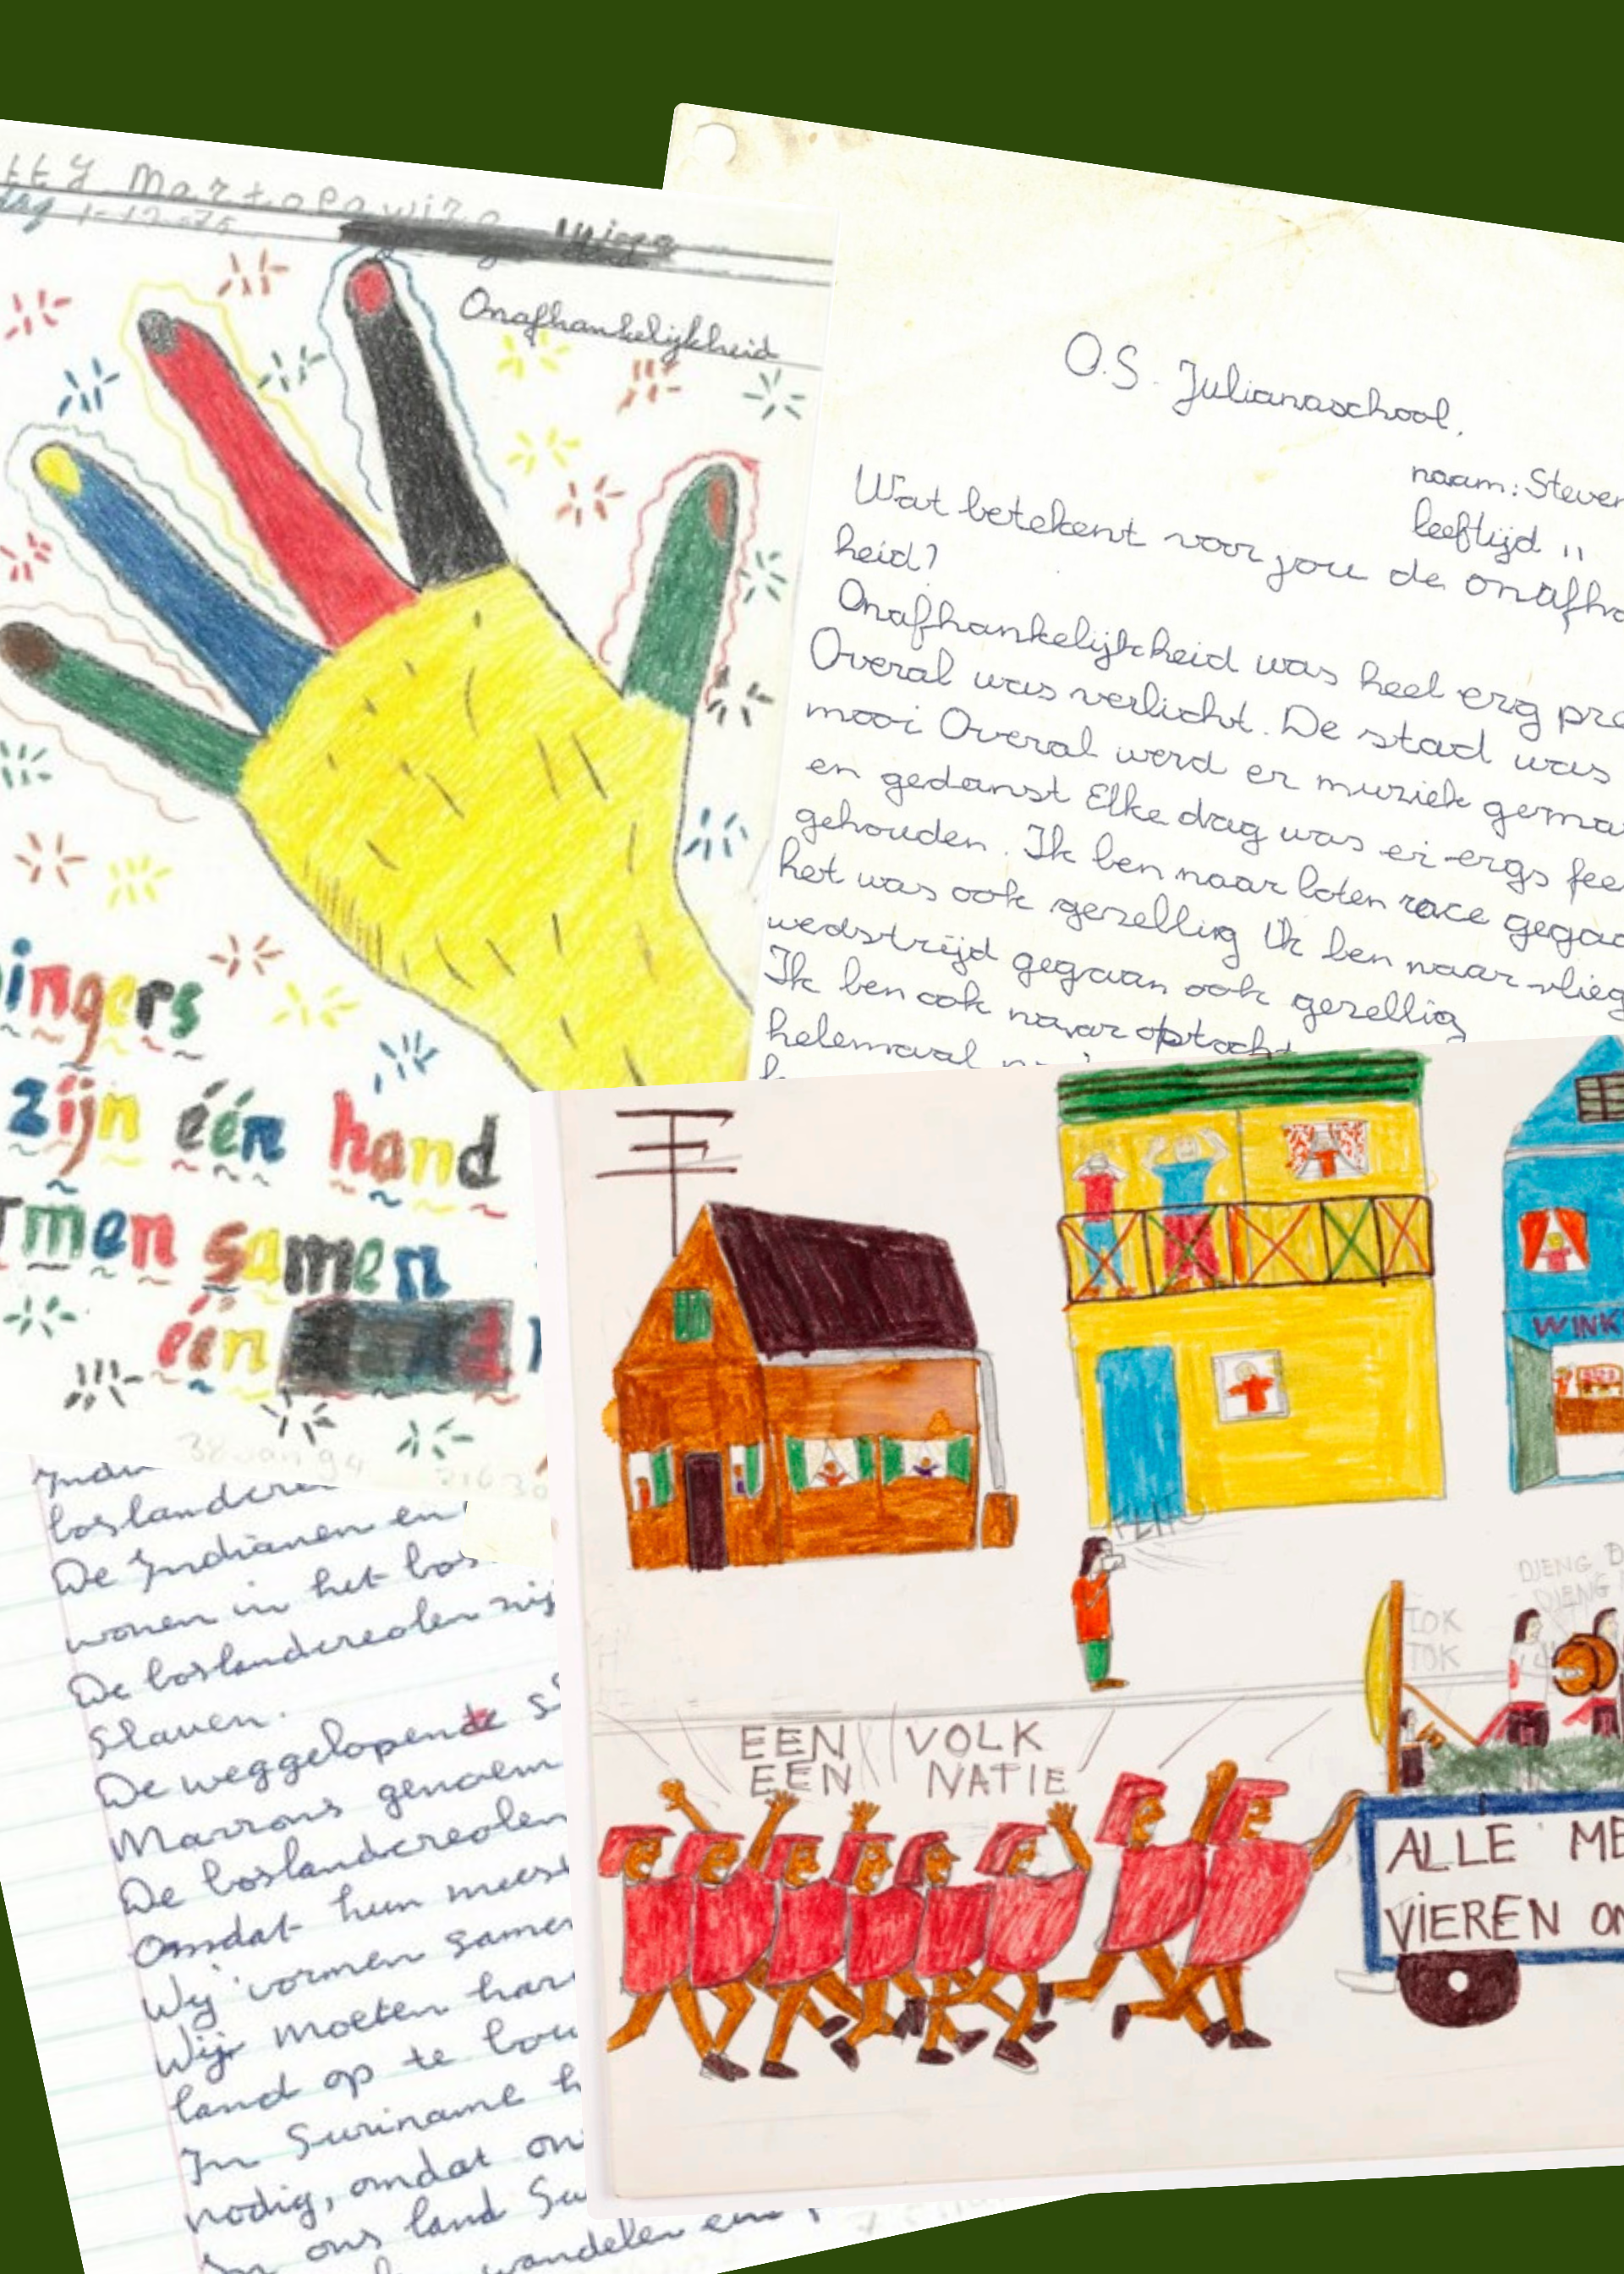 tty Martopawiro
dag 1-12-75
Onafhankelijkheid
ingers
zijn één hand
rmen samen
één
O.S. Julianaschool.
naam: Steven
leeftijd 11
Wat betekent voor jou de onafha
heid?
Onafhankelijkheid was heel erg pre
Overal was verlicht. De stad was
mooi Overal werd er muziek gema
en gedanst Elke dag was er ergs fee
gehouden. Ik ben naar boten race gegaa
het was ook gezellig Ik ben naar vlieg
wedstrijd gegaan ook gezellig
Ik ben ook naar optocht
helemaal
India
boslandcre
De Indianen en
wonen in het bos
De boslandcreolen zij
Slaven.
De weggelopende s
Marrons genoem
De boslandcreolen
Omdat hun mees
Wij vormen samen
Wij moeten har
land op te bou
In Suriname h
nodig, omdat on
In ons land Su
wandelen en
WINK
FLITS
DJENG D
DJENG
TOK
TOK
EEN VOLK
EEN NATIE
ALLE ME
VIEREN ON